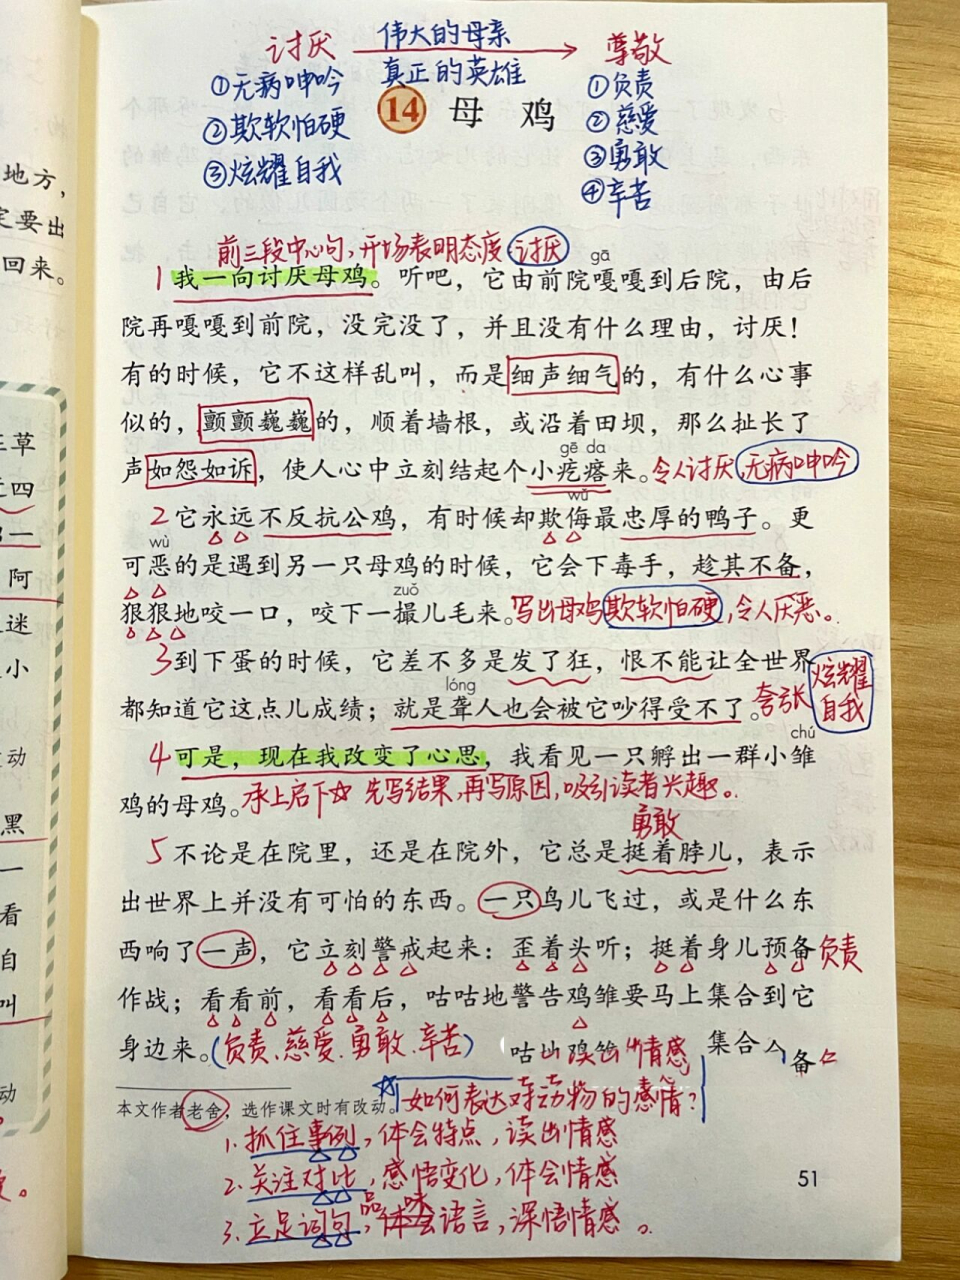 地方，
定要出
回来。
草
四
一
阿
迷
小
动
黑
一
看
自
叫
动
讨厌 伟大的母亲 尊敬
真正的英雄
①无病呻吟 ①负责
14 母鸡
②欺软怕硬 ②慈爱
③炫耀自我 ③勇敢
④辛苦
前三段中心句，开场表明态度 讨厌
gā
1 我一向讨厌母鸡。听吧，它由前院嘎嘎到后院，由后
院再嘎嘎到前院，没完没了，并且没有什么理由，讨厌！
有的时候，它不这样乱叫，而是细声细气的，有什么心事
似的，颤颤巍巍的，顺着墙根，或沿着田坝，那么扯长了
gē da
声如怨如诉，使人心中立刻结起个小疙瘩来。令人讨厌 无病呻吟
wǔ
2 它永远不反抗公鸡，有时候却欺侮最忠厚的鸭子。更
wù
可恶的是遇到另一只母鸡的时候，它会下毒手，趁其不备，
zuǒ
狠狠地咬一口，咬下一撮儿毛来。写出母鸡欺软怕硬，令人厌恶。
3 到下蛋的时候，它差不多是发了狂，恨不能让全世界
lóng
都知道它这点儿成绩；就是聋人也会被它吵得受不了。夸张 炫耀
自我
chú
4 可是，现在我改变了心思，我看见一只孵出一群小雏
鸡的母鸡。承上启下☆ 先写结果，再写原因，吸引读者兴趣。
勇敢
5 不论是在院里，还是在院外，它总是挺着脖儿，表示
出世界上并没有可怕的东西。一只鸟儿飞过，或是什么东
西响了一声，它立刻警戒起来：歪着头听；挺着身儿预备 负责
作战；看看前，看看后，咕咕地警告鸡雏要马上集合到它
身边来。（负责、慈爱、勇敢、辛苦）
情感 集合 备
本文作者老舍，选作课文时有改动。
☆如何表达对动物的感情？
1. 抓住事例，体会特点，读出情感
2. 关注对比，感悟变化，体会情感
3. 立足词句，品味语言，深悟情感。
51